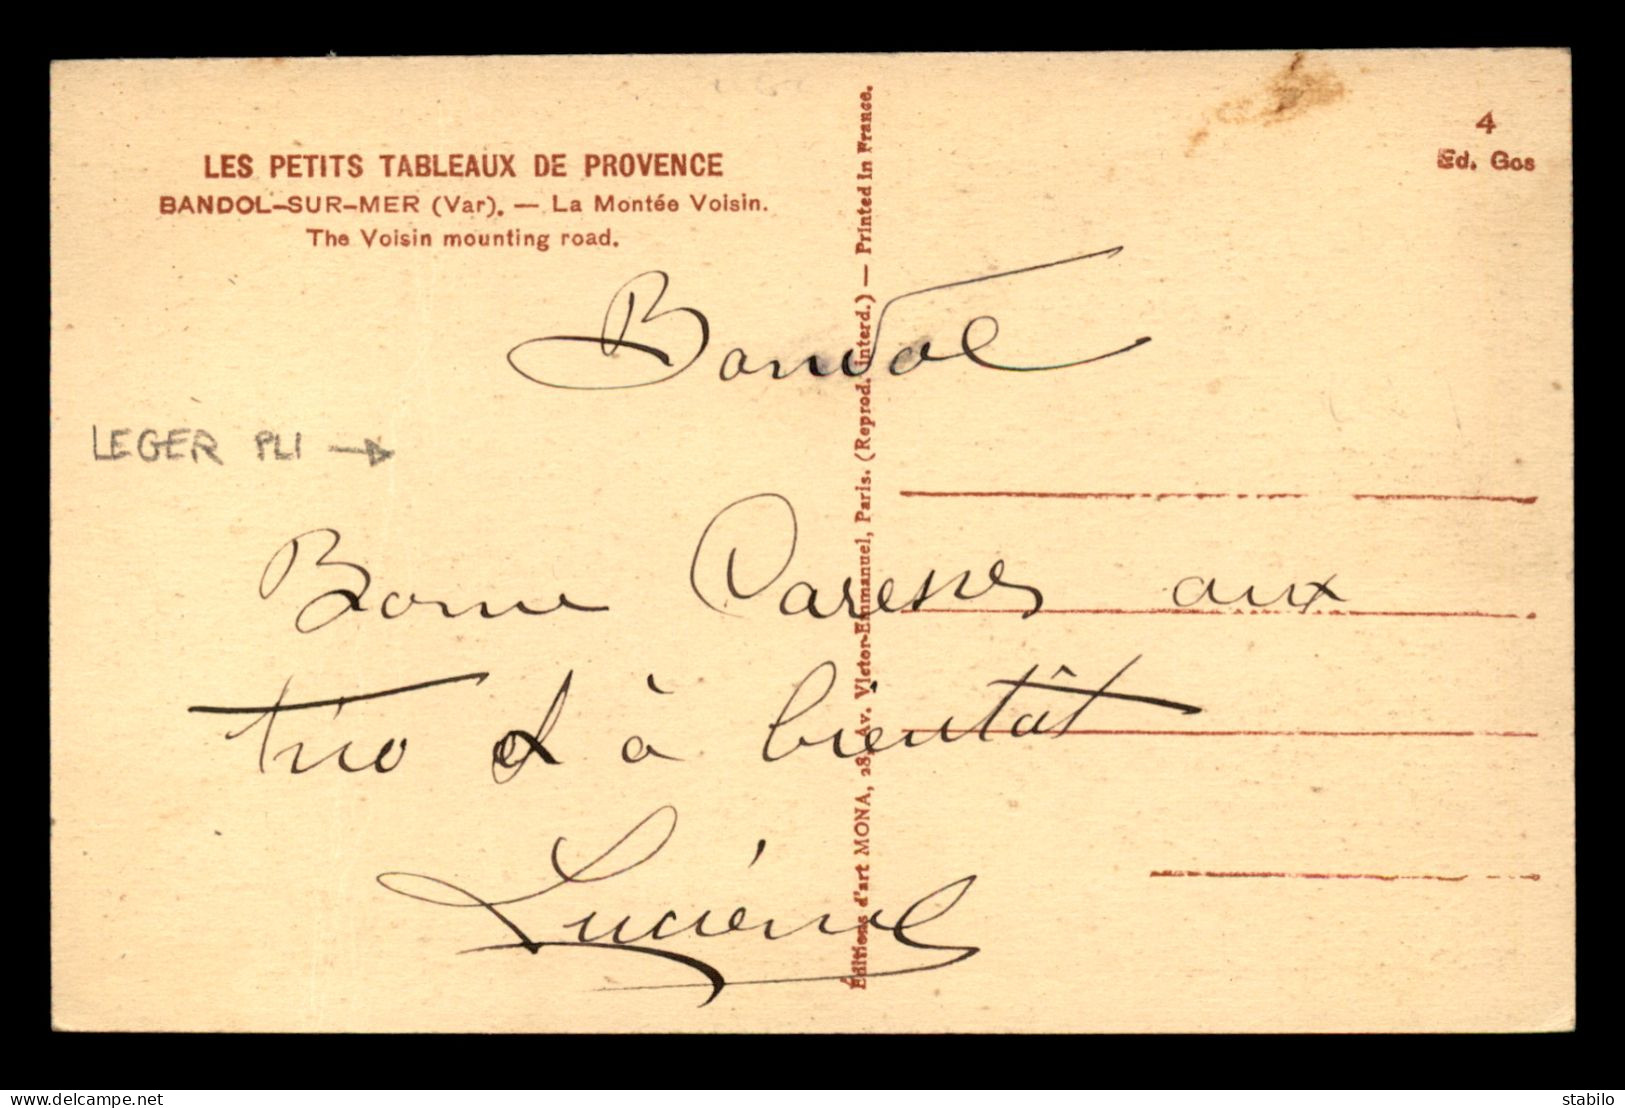 LES PETITS TABLEAUX DE PROVENCE
BANDOL-SUR-MER (Var). — La Montée Voisin.
The Voisin mounting road.
4
Ed. Gos
Éditions d'art MONA, 28, Av. Victor-Emmanuel, Paris. (Reprod. interd.) — Printed in France.
Bandol
LEGER PLI →
Bonne Caresses aux
trio et à bientôt
delcampe.net
stabilo